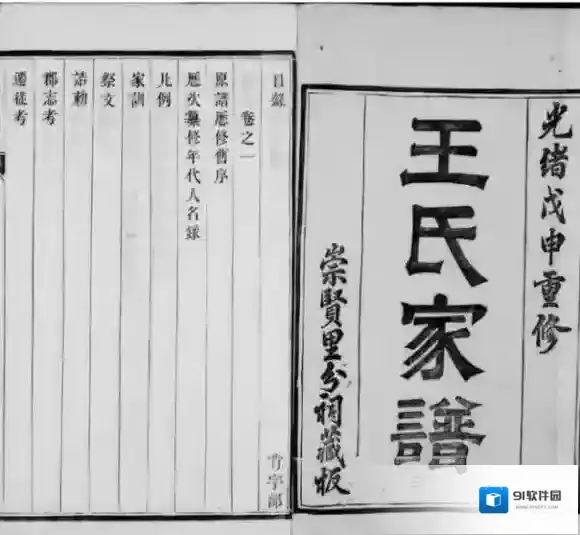 光緒戊申重修
王氏家譜
崇賢里分祠藏板
目錄
卷之一
原譜歷修舊序
歷次纂修年代人名錄
凡例
家訓
祭文
誥勅
郡志考
遷徙考
91软件园